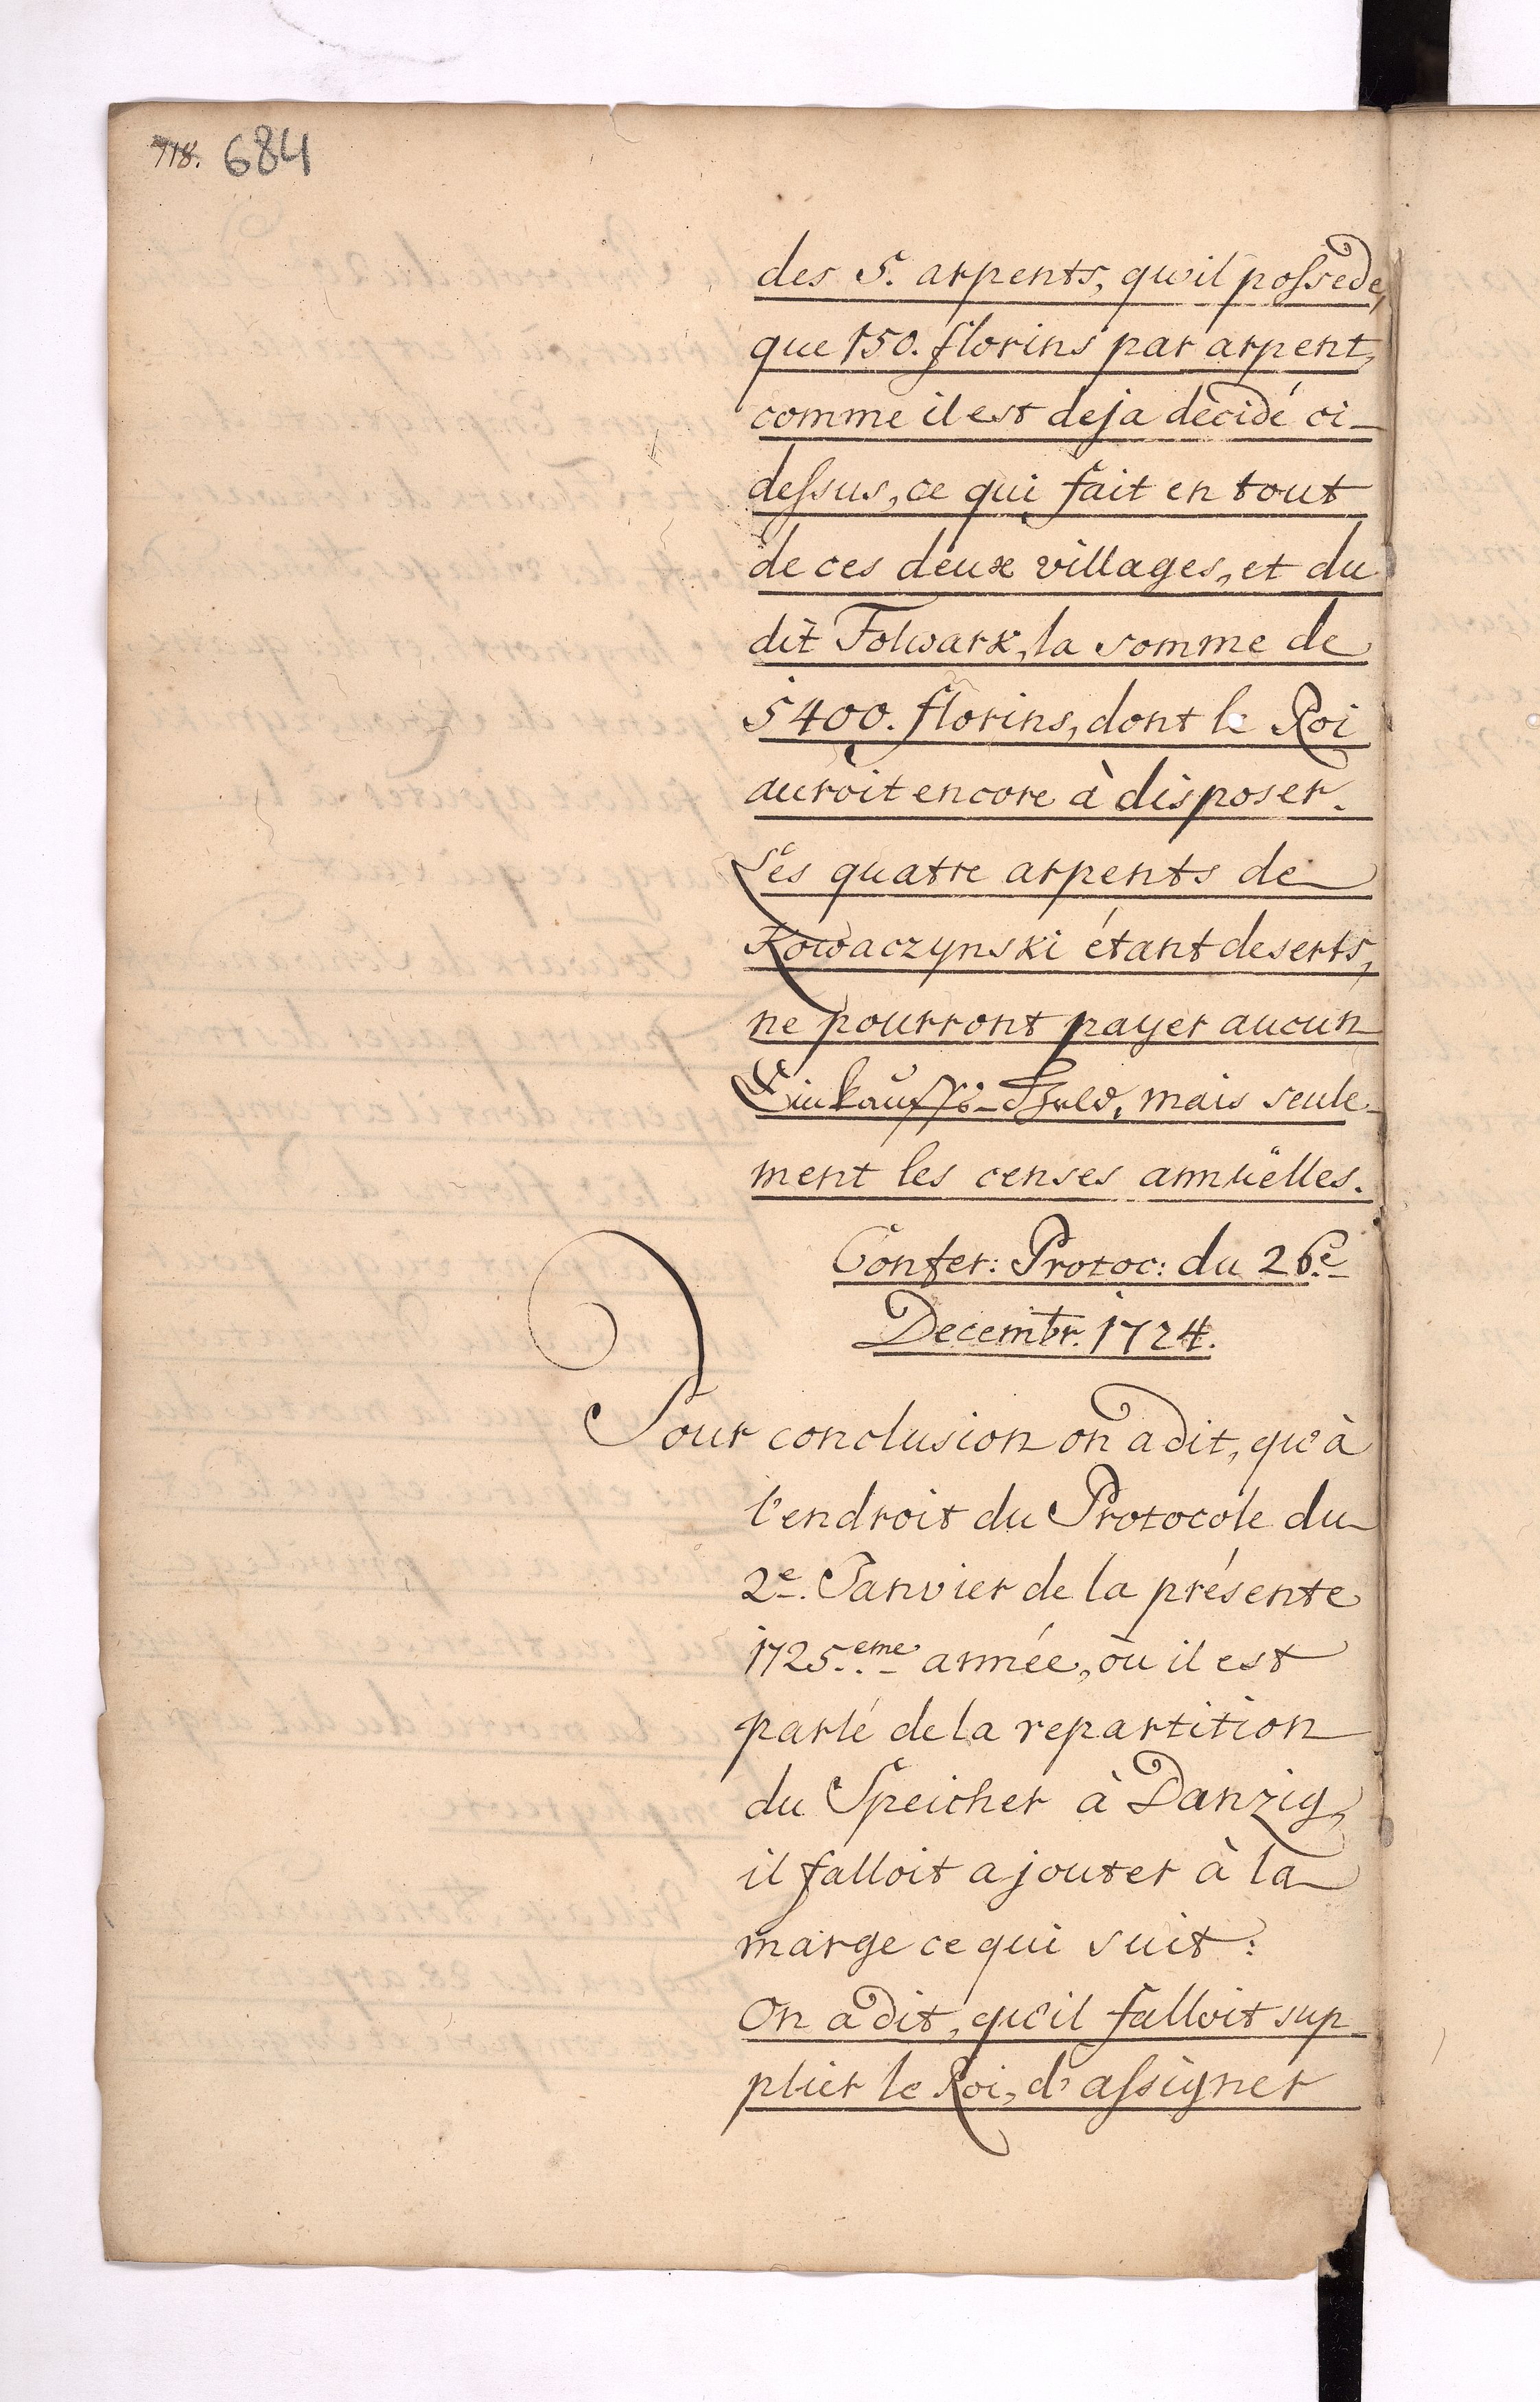 718. 684
des 5. arpents, qu'il possede,
que 150. florins par arpent,
comme il est deja decidé ci-
dessus, ce qui fait en tout
de ces deux villages, et du
dit Folwark, la somme de
5400. florins, dont le Roi
auroit encore à disposer.
Les quatre arpents de
Kowaczynski étant deserts,
ne pourront payer aucun
Einkauffs-Geld, mais seule-
ment les censes annuëlles.
Confer: Protoc: du 26.e
Decembr. 1724.
Pour conclusion on a dit, qu'à
l'endroit du Protocole du
2e. Janvier de la présente
1725.eme année, où il est
parlé de la repartition
du Speicher à Danzig,
il falloit ajouter à la
marge ce qui suit:
On a dit, qu'il falloit sup-
plier le Roi, d'assigner